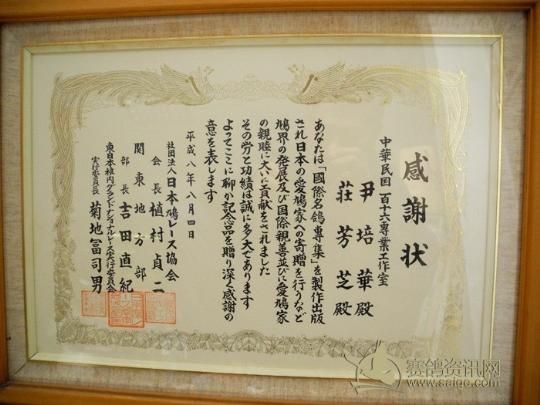 感謝状
中華民国 一百十六専業工作室
尹培華殿
荘芳芝殿
あなたは「國際名鴿專集」を製作出版
され日本の愛鳩家への寄贈を行うなど
鳩界の発展及び国際親善並びに愛鳩家
の親睦に大いに貢献をされました
その労と功績は誠に多大であります
よってここに聊か記念品を贈り深く感謝の
意を表します
平成八年八月四日
社団法人日本鳩レース協会
会長 植村貞二
関東地方部
部長 吉田直紀
東日本稚内グランドナショナルレース実行委員会
実行委員長 菊地冨司男
赛鸽资讯网
www.saige.com